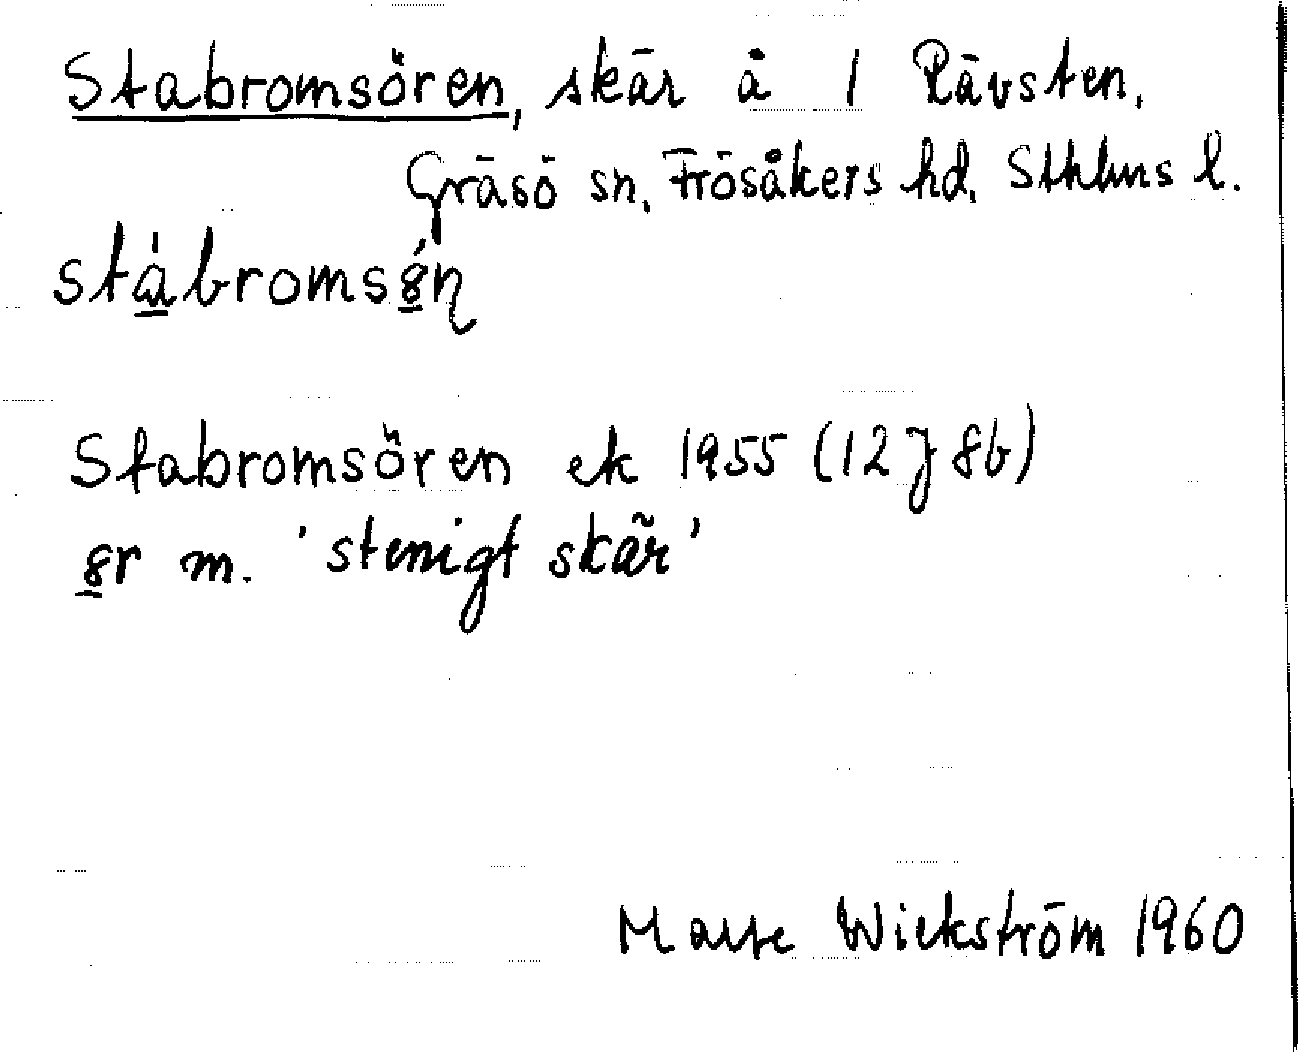 Stabromsören, skär å 1 Rävsten,
Gräsö sn, Frösåkers hd, Sthlms l.
stábromsǿ̱ɳ
Stabromsören ek 1955 (12 J 8b)
8r m. 'stenigt skär'
Wickström 1960